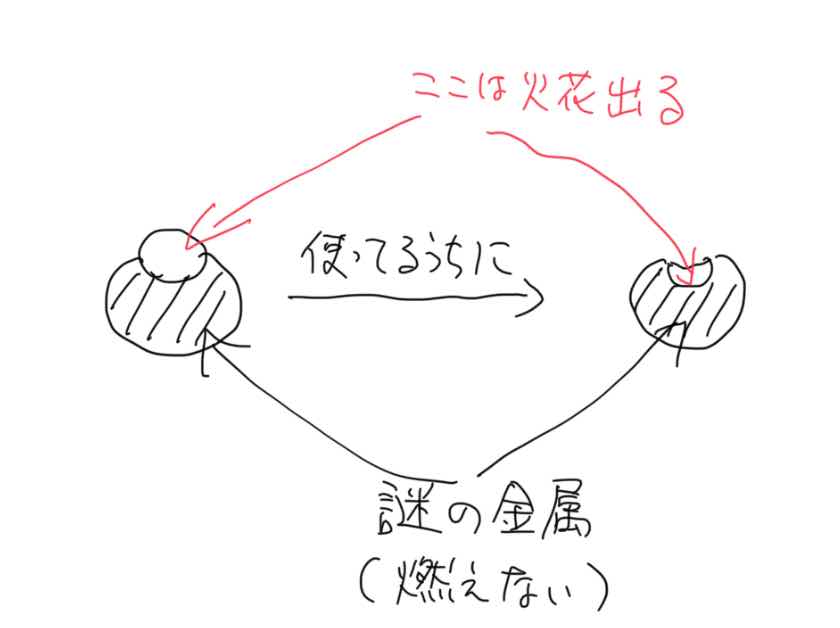 ここは火花出る
使ってるうちに
謎の金属
(燃えない)